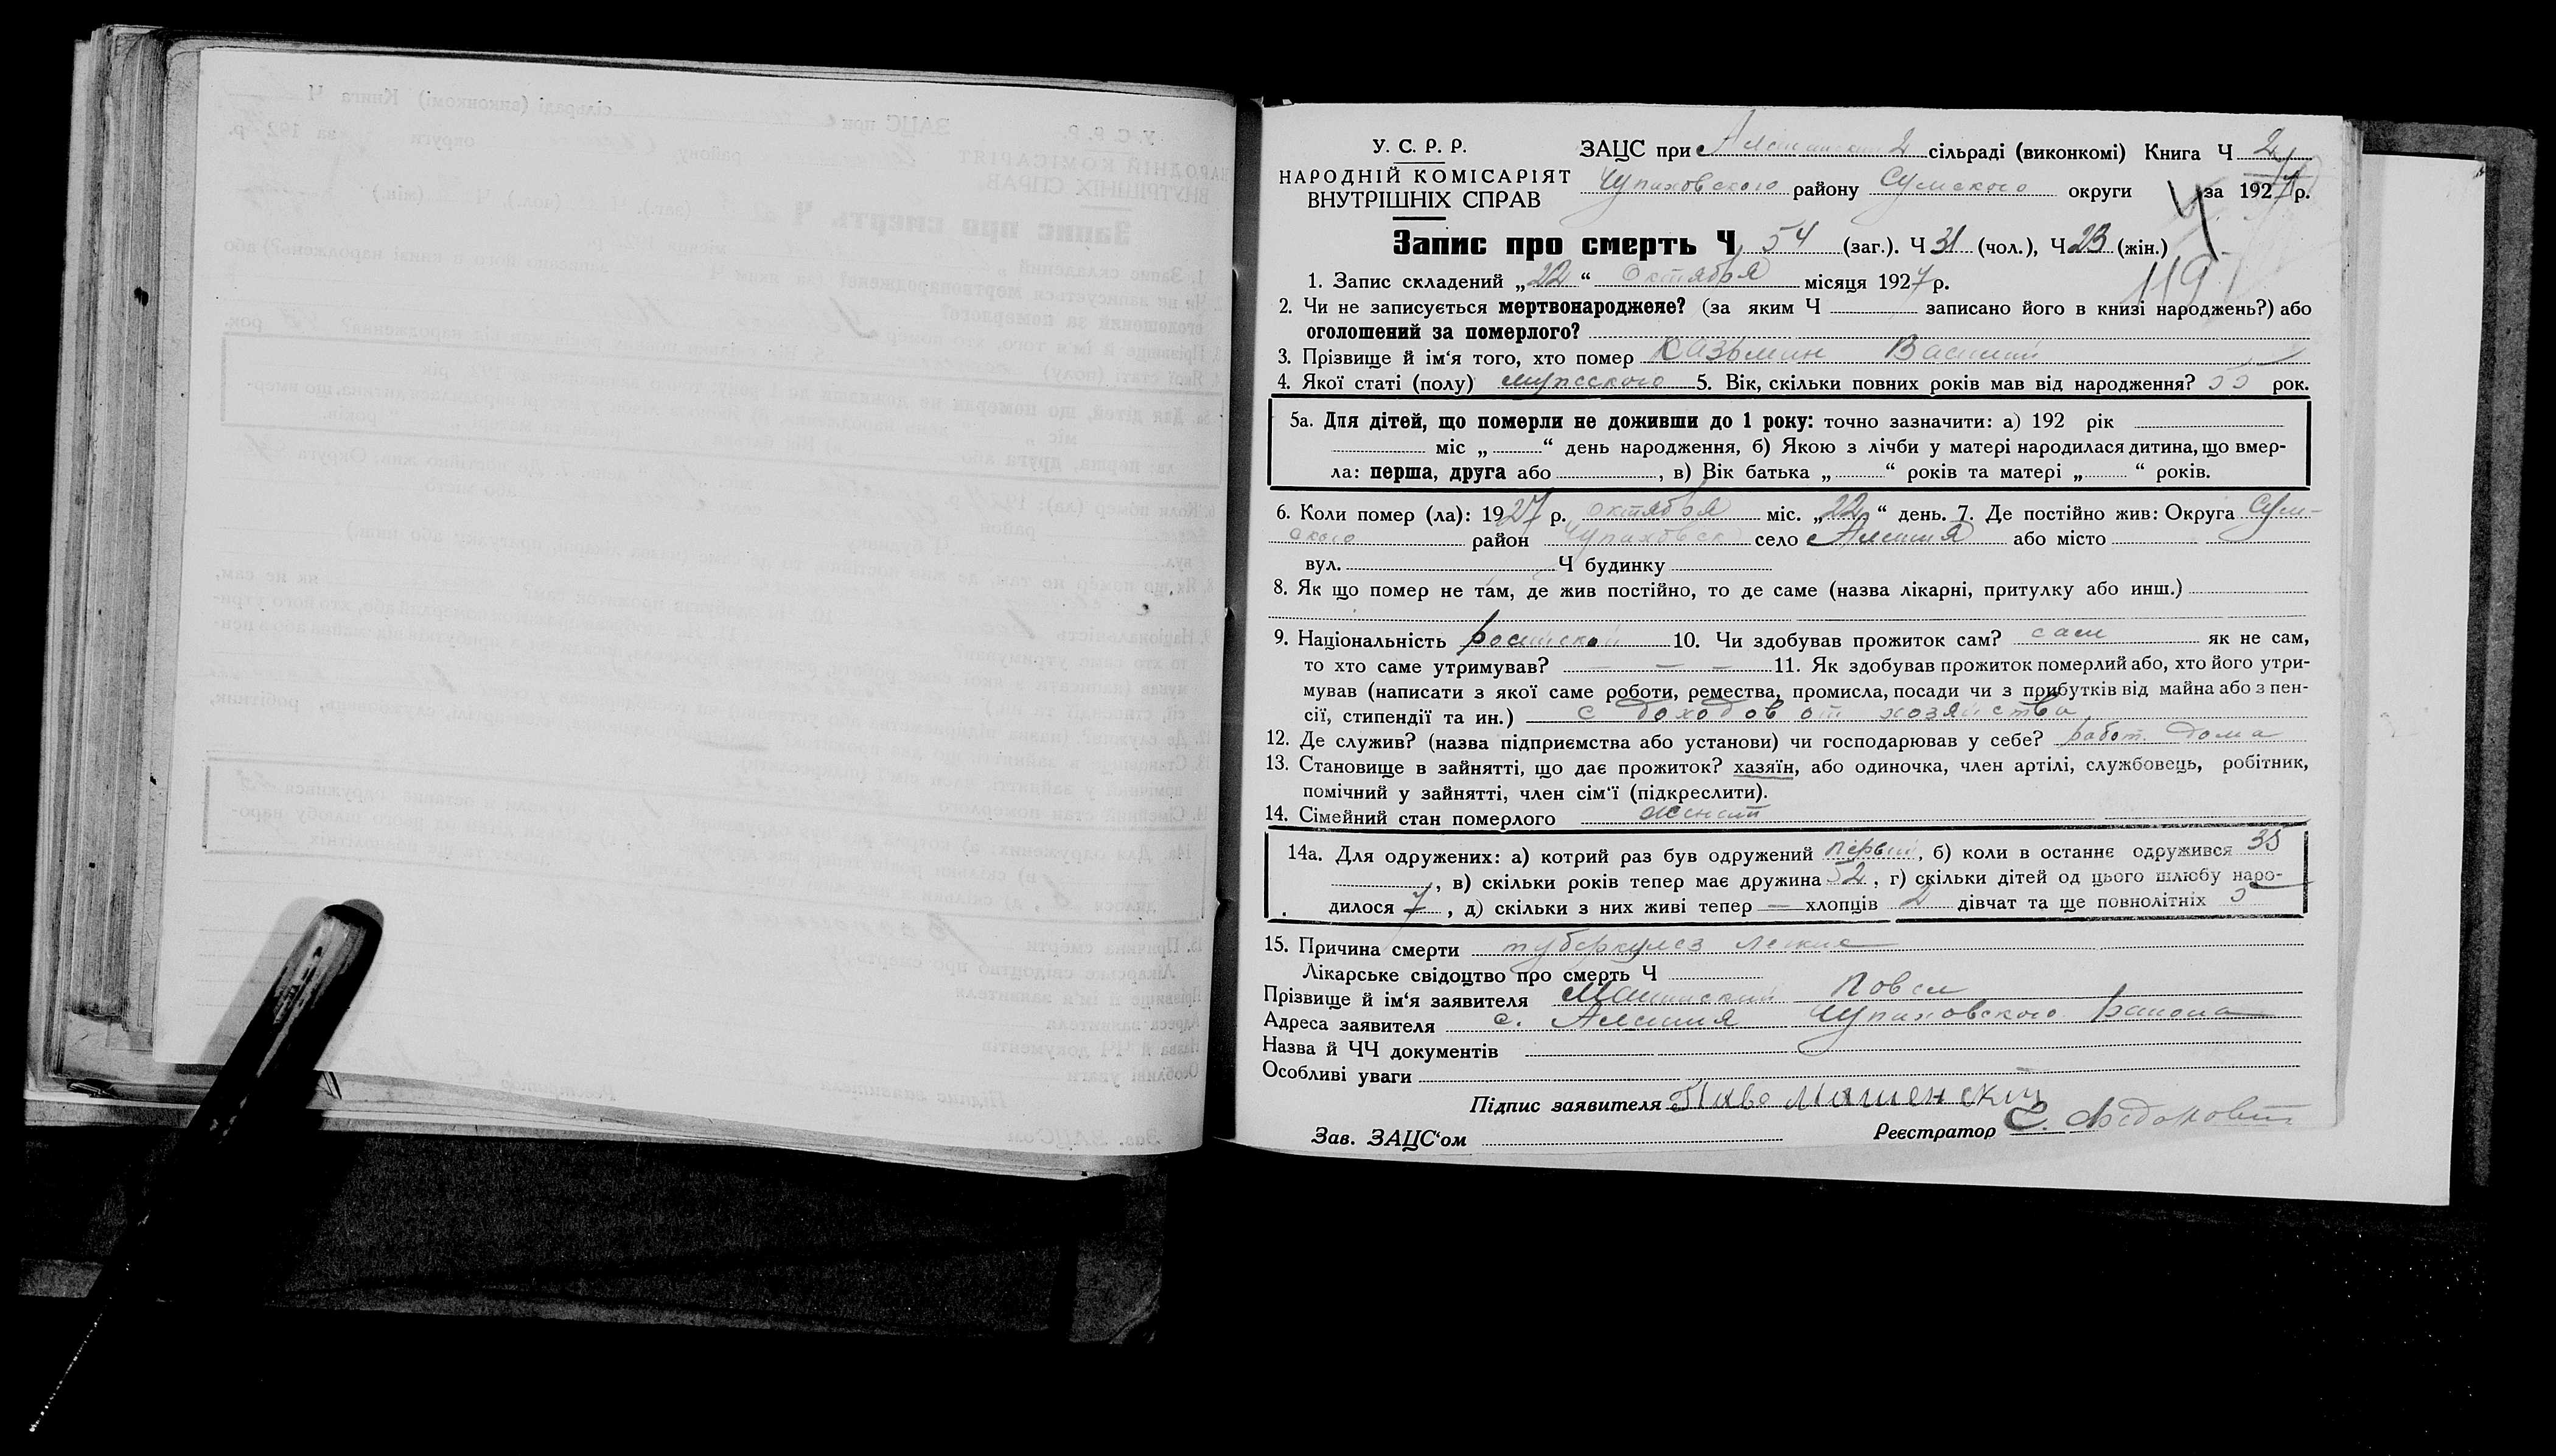 У. С. Р. Р.
НАРОДНІЙ КОМІСАРІЯТ
ВНУТРІШНІХ СПРАВ
ЗАЦС при 2 сільраді (виконкомі) Книга Ч 2
Чупаховского району Сумского округи за 1927 р.
Запис про смерть Ч 54 (заг.). Ч 31 (чол.), Ч 23 (жін.)
119
1. Запис складений „22“ Октября місяця 1927 р.
2. Чи не записується мертвонароджене? (за яким Ч записано його в книзі народжень?) або
оголошений за померлого?
3. Прізвище й ім‘я того, хто помер Казьмин Василий
4. Якої статі (полу) мужского 5. Вік, скільки повних років мав від народження? 55 рок.
5а. Для дітей, що померли не доживши до 1 року: точно зазначити: а) 192 рік
міс „ “ день народження, б) Якою з лічби у матері народилася дитина, що вмер-
ла: перша, друга або , в) Вік батька „ “ років та матері „ “ років.
6. Коли помер (ла): 1927 р. октября міс. „22“ день. 7. Де постійно жив: Округа Сум-
ского район Чупаховск село Алешня або місто
вул. Ч будинку
8. Як що помер не там, де жив постійно, то де саме (назва лікарні, притулку або инш.)
9. Національність 10. Чи здобував прожиток сам? сам як не сам,
то хто саме утримував? — — — 11. Як здобував прожиток померлий або, хто його утри-
мував (написати з якої саме роботи, ремества, промисла, посади чи з прибутків від майна або з пен-
сії, стипендії та ин.) с доходов от хозяйства
12. Де служив? (назва підприємства або установи) чи господарював у себе? работ. дома
13. Становище в зайнятті, що дає прожиток? хазяїн, або одиночка, член артілі, службовець, робітник,
помічний у зайнятті, член сім‘ї (підкреслити).
14. Сімейний стан померлого женат
14а. Для одружених: а) котрий раз був одружений первый, б) коли в останнє одружився 35
, в) скільки років тепер має дружина 52, г) скільки дітей од цього шлюбу наро-
дилося 7, д) скільки з них живі тепер — хлопців 2 дівчат та ще повнолітніх 3
15. Причина смерти туберкулез легких
Лікарське свідоцтво про смерть Ч
Прізвище й ім‘я заявителя Павел
Адреса заявителя с. Алешня Чупаховского района
Назва й ЧЧ документів
Особливі уваги
Підпис заявителя Машенский
Зав. ЗАЦС‘ом Реєстратор